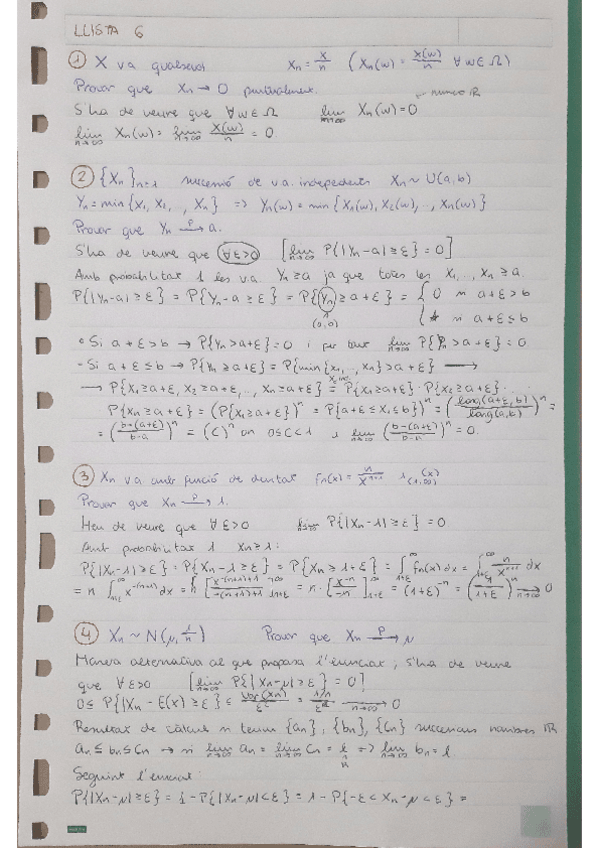 LLISTA 6
① X va qualsevol Xn = X/n (Xn(w) = X(w)/n ∀w∈Ω)
Provar que Xn → 0 puntualment.
nombre ℝ
S'ha de veure que ∀w∈Ω lim n→∞ Xn(w) = 0
lim n→∞ Xn(w) = lim n→∞ X(w)/n = 0.
② {Xn} n≥1 successió de v.a. independents Xn ~ U(a,b)
Yn = min{X1, X2, .., Xn} => Yn(w) = min{X1(w), X2(w), .., Xn(w)}
Provar que Yn –P→ a.
S'ha de veure que ∀ε>0 [lim n→∞ P{|Yn-a| ≥ ε} = 0]
Amb probabilitat 1 les v.a. Yn ≥ a ja que totes les X1, .., Xn ≥ a.
P{|Yn-a| ≥ ε} = P{Yn-a ≥ ε} = P{Yn ≥ a+ε} = { 0 si a+ε > b
{ * si a+ε ≤ b
• Si a+ε > b → P{Yn > a+ε} = 0 i per tant lim n→∞ P{Yn > a+ε} = 0
- Si a+ε ≤ b → P{Yn ≥ a+ε} = P{min{X1, .., Xn} > a+ε} →
→ P{X1 ≥ a+ε, X2 ≥ a+ε, .., Xn ≥ a+ε} = P{X1 ≥ a+ε} · P{X2 ≥ a+ε} ...
· P{Xn ≥ a+ε} = (P{X1 ≥ a+ε})^n = P{a+ε ≤ X1 ≤ b}^n = (long(a+ε, b)/long(a,b))^n =
= (b-(a+ε)/b-a)^n = (C)^n on 0≤C<1 i lim n→∞ (b-(a+ε)/b-a)^n = 0.
③ Xn va amb funció de densitat fn(x) = n/x^(n+1) 1(1,∞)(x)
Provar que Xn –P→ 1.
Hem de veure que ∀ε>0 lim n→∞ P{|Xn-1| ≥ ε} = 0.
Amb probabilitat 1 Xn ≥ 1:
P{|Xn-1| ≥ ε} = P{Xn-1 ≥ ε} = P{Xn ≥ 1+ε} = ∫_{1+ε}^∞ fn(x) dx = ∫_{1+ε}^∞ n/x^(n+1) dx
= n ∫_{1+ε}^∞ x^-(n+1) dx = n [x^(-(n+1)+1)/-(n+1)+1]_{1+ε}^∞ = n · [x^-n/-n]_{1+ε}^∞ = (1+ε)^-n = (1/1+ε)^n –n→∞→ 0
④ Xn ~ N(μ, 1/n) Provar que Xn –P→ μ
Manera alternativa al que proposa l'enunciat; s'ha de veure
que ∀ε>0 [lim n→∞ P{|Xn-μ| ≥ ε} = 0]
0 ≤ P{|Xn - E(x) ≥ ε} ≤ Var(Xn)/ε² = 1/n/ε² –n→∞→ 0
Resultat de càlcul: si tenim {an}, {bn}, {cn} successions nombres ℝ
an ≤ bn ≤ cn → si lim n→∞ an = lim n→∞ cn = l => lim n→∞ bn = l.
Seguint l'enunciat:
P{|Xn-μ| ≥ ε} = 1 - P{|Xn-μ| < ε} = 1 - P{-ε < Xn-μ < ε} =